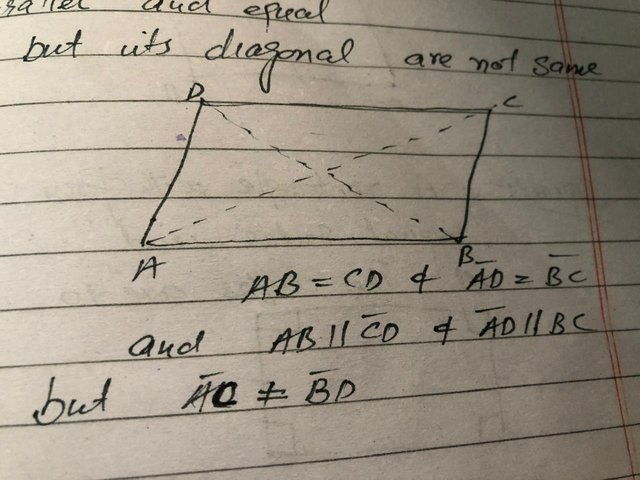 and equal
but its diagonal are not same
D C
A B
AB = CD & A̅D̅ = B̅C̅
and AB || C̅D̅ & A̅D̅ || BC
but A̅C̅ ≠ B̅D̅